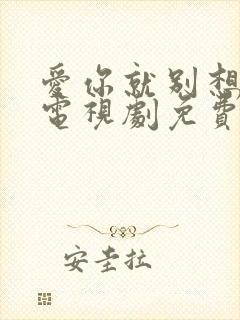 愛你就別想
電視劇免費
安圭拉